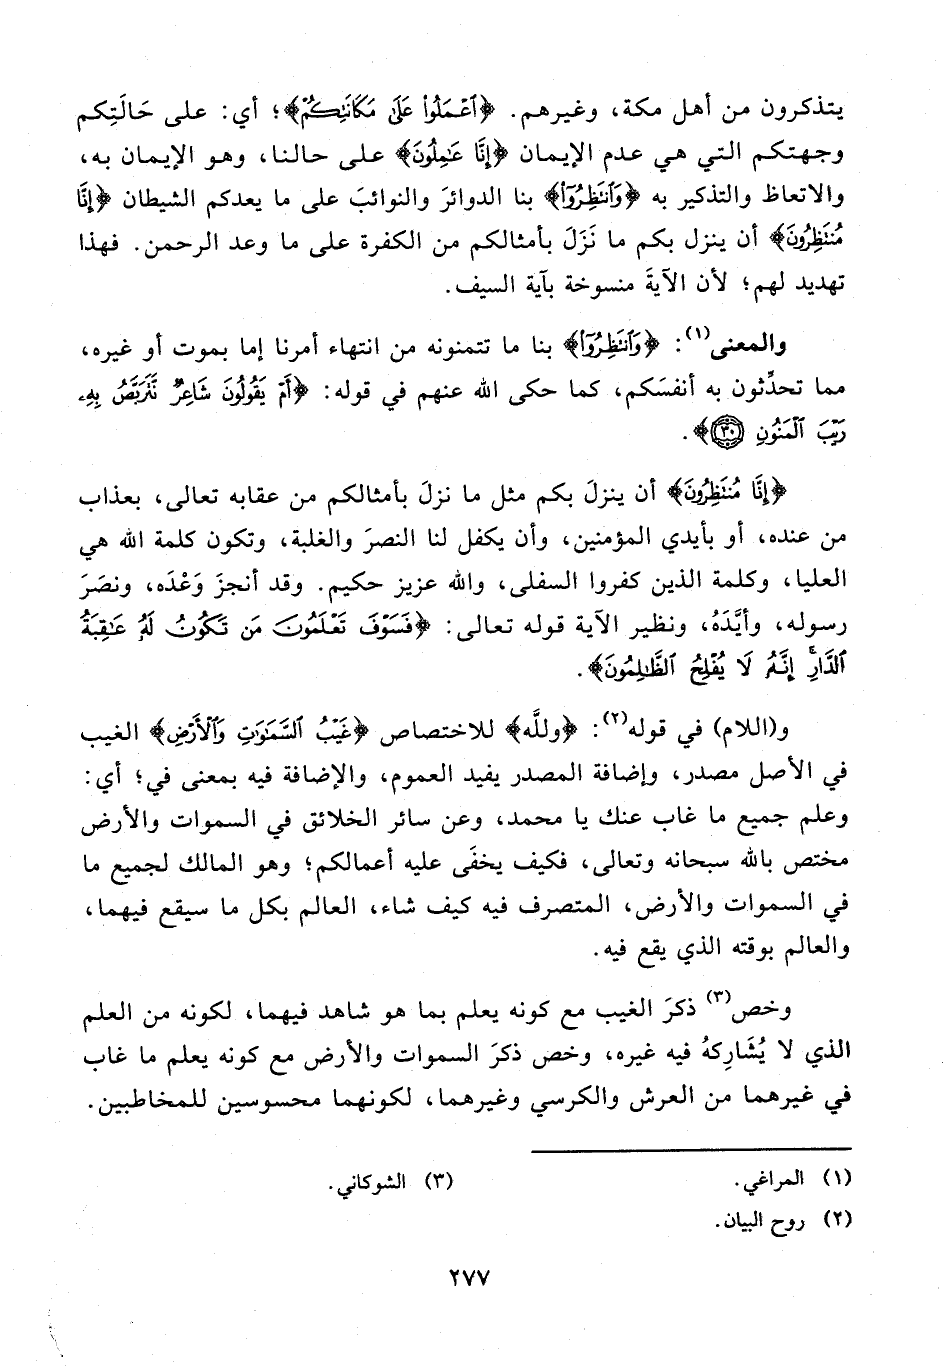 يتذكرون من أهل مكة، وغيرهم. ﴿ٱعۡمَلُواْ عَلَىٰ مَكَانَتِكُمۡ﴾؛ أي: على حَالَتِكم
وجهتكم التي هي عدم الإيمان ﴿إِنَّا عَٰمِلُونَ﴾ على حالنا، وهو الإيمان به،
والاتعاظ والتذكير به ﴿وَٱنتَظِرُوٓاْ﴾ بنا الدوائرَ والنوائبَ على ما يعدكم الشيطان ﴿إِنَّا
مُنتَظِرُونَ﴾ أن ينزل بكم ما نَزَلَ بأمثالكم من الكفرة على ما وعد الرحمن. فهذا
تهديد لهم؛ لأن الآيةَ منسوخة بآية السيف.
والمعنى(١): ﴿وَٱنتَظِرُوٓاْ﴾ بنا ما تتمنونه من انتهاء أمرنا إما بموت أو غيره،
مما تحدِّثون به أنفسَكم، كما حكى الله عنهم في قوله: ﴿أَمۡ يَقُولُونَ شَاعِرٞ نَّتَرَبَّصُ بِهِۦ
رَيۡبَ ٱلۡمَنُونِ ٣٠﴾.
﴿إِنَّا مُنتَظِرُونَ﴾ أن ينزلَ بكم مثل ما نزلَ بأمثالكم من عقابه تعالى، بعذاب
من عنده، أو بأيدي المؤمنين، وأن يكفل لنا النصرَ والغلبة، وتكون كلمة الله هي
العليا، وكلمة الذين كفروا السفلى، والله عزيز حكيم. وقد أنجزَ وَعْدَه، ونصَرَ
رسوله، وأيَّدَهُ، ونظير الآية قوله تعالى: ﴿فَسَوۡفَ تَعۡلَمُونَ مَن تَكُونُ لَهُۥ عَٰقِبَةُ
ٱلدَّارِۚ إِنَّهُۥ لَا يُفۡلِحُ ٱلظَّٰلِمُونَ﴾.
و(اللام) في قوله(٢): ﴿وللَّه﴾ للاختصاص ﴿غَيۡبُ ٱلسَّمَٰوَٰتِ وَٱلۡأَرۡضِ﴾ الغيب
في الأصل مصدر، وإضافة المصدر يفيد العموم، والإضافة فيه بمعنى في؛ أي:
وعلم جميع ما غاب عنك يا محمد، وعن سائر الخلائق في السموات والأرض
مختص بالله سبحانه وتعالى، فكيف يخفَى عليه أعمالكم؛ وهو المالك لجميع ما
في السموات والأرض، المتصرف فيه كيف شاء، العالم بكل ما سيقع فيهما،
والعالم بوقته الذي يقع فيه.
وخص(٣) ذكرَ الغيب مع كونه يعلم بما هو شاهد فيهما، لكونه من العلم
الذي لا يُشَارِكهُ فيه غيره، وخص ذكرَ السموات والأرض مع كونه يعلم ما غاب
في غيرهما من العرش والكرسي وغيرهما، لكونهما محسوسين للمخاطبين.
(١) المراغي.
(٢) روح البيان.
(٣) الشوكاني.
٢٧٧